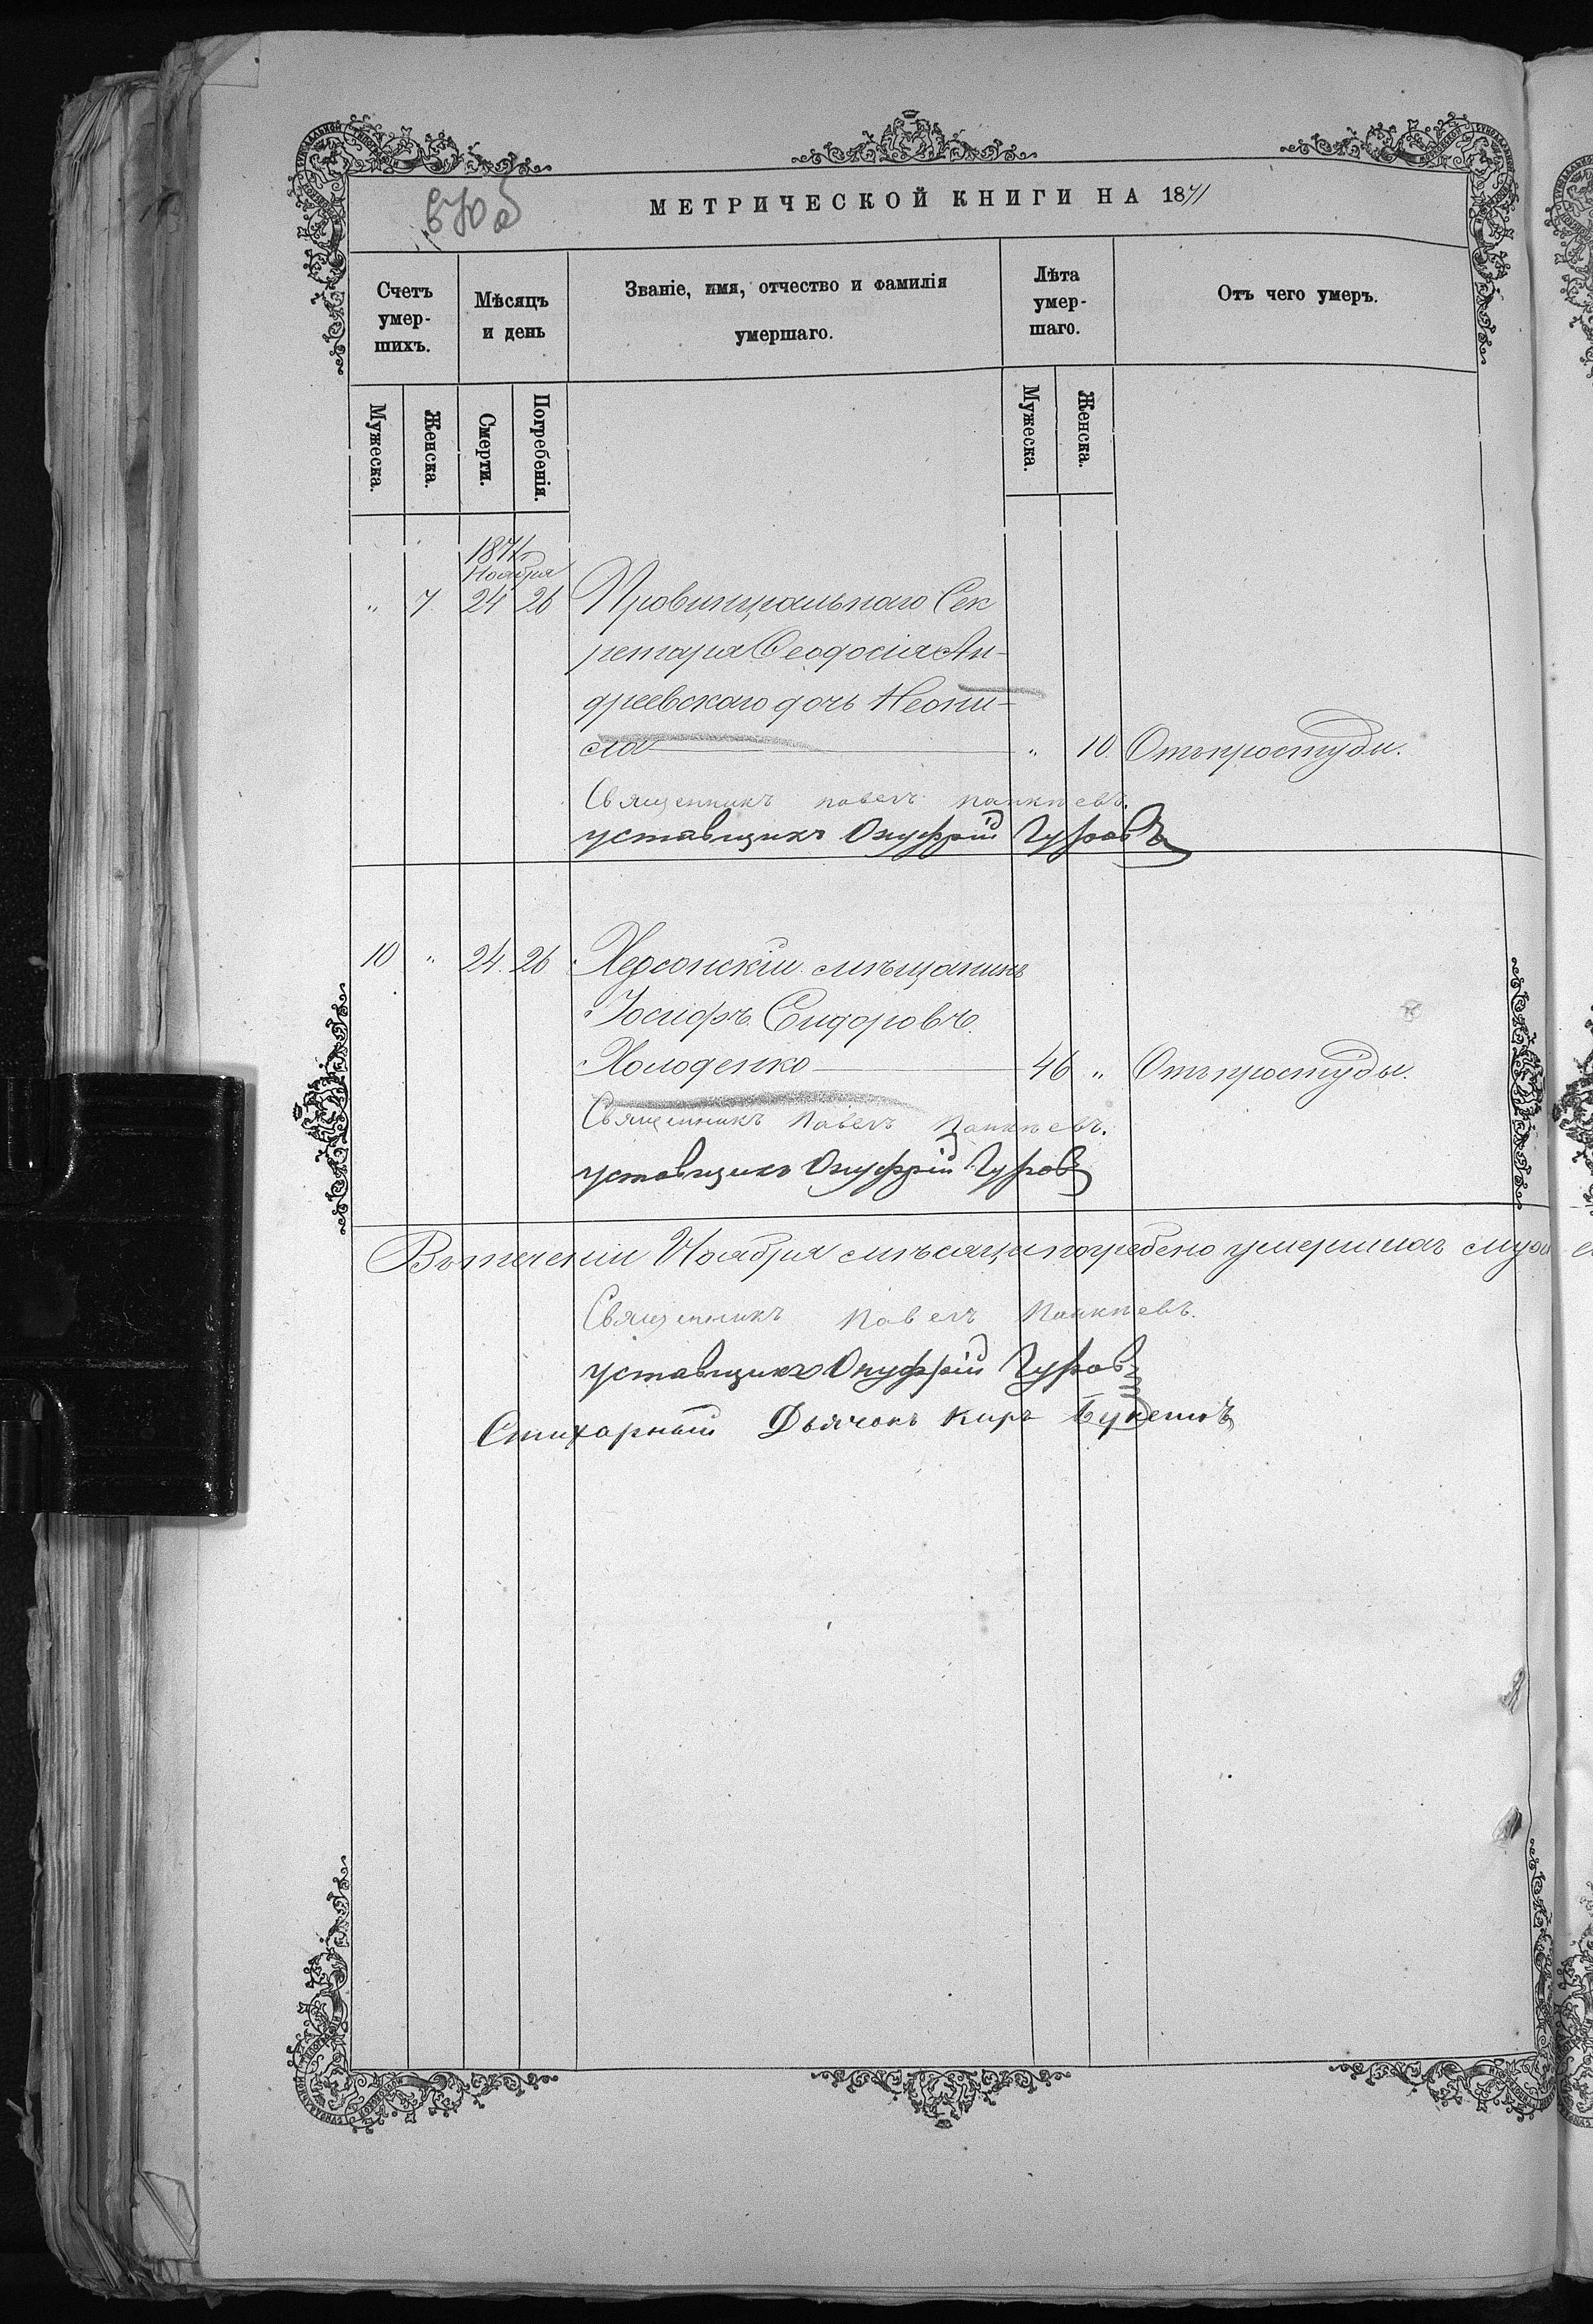 МЕТРИЧЕСКОЙ КНИГИ НА 1871
Счетъ умер-шихъ.
Мѣсяцъ и день
Званіе, имя, отчество и фамилія умершаго.
Лѣта умер-шаго.
Отъ чего умеръ.
Мужеска.
Женска.
Смерти.
Погребенія.
Мужеска.
Женска.
1871
Ноября
" 7 24 26 Провинціальнаго Сек
ретаря Ѳеодосія Ан-
дреевскаго дочь Неони-
ла " 10. Отъ простуды.
Священникъ Павелъ
уставщикъ Онуфрій Гуровъ
10 " 24. 26 Херсонскій мѣщанинъ
Іосифъ Сидоровъ
Холоденко 46 " Отъ простуды.
Священникъ Павелъ
уставщикъ Онуфрій Гуровъ
Въ теченіи Ноября мѣсяца погребено умершихъ
Священникъ Павелъ
уставщикъ Онуфрій Гуровъ
Стихарный Дьячокъ Киръ